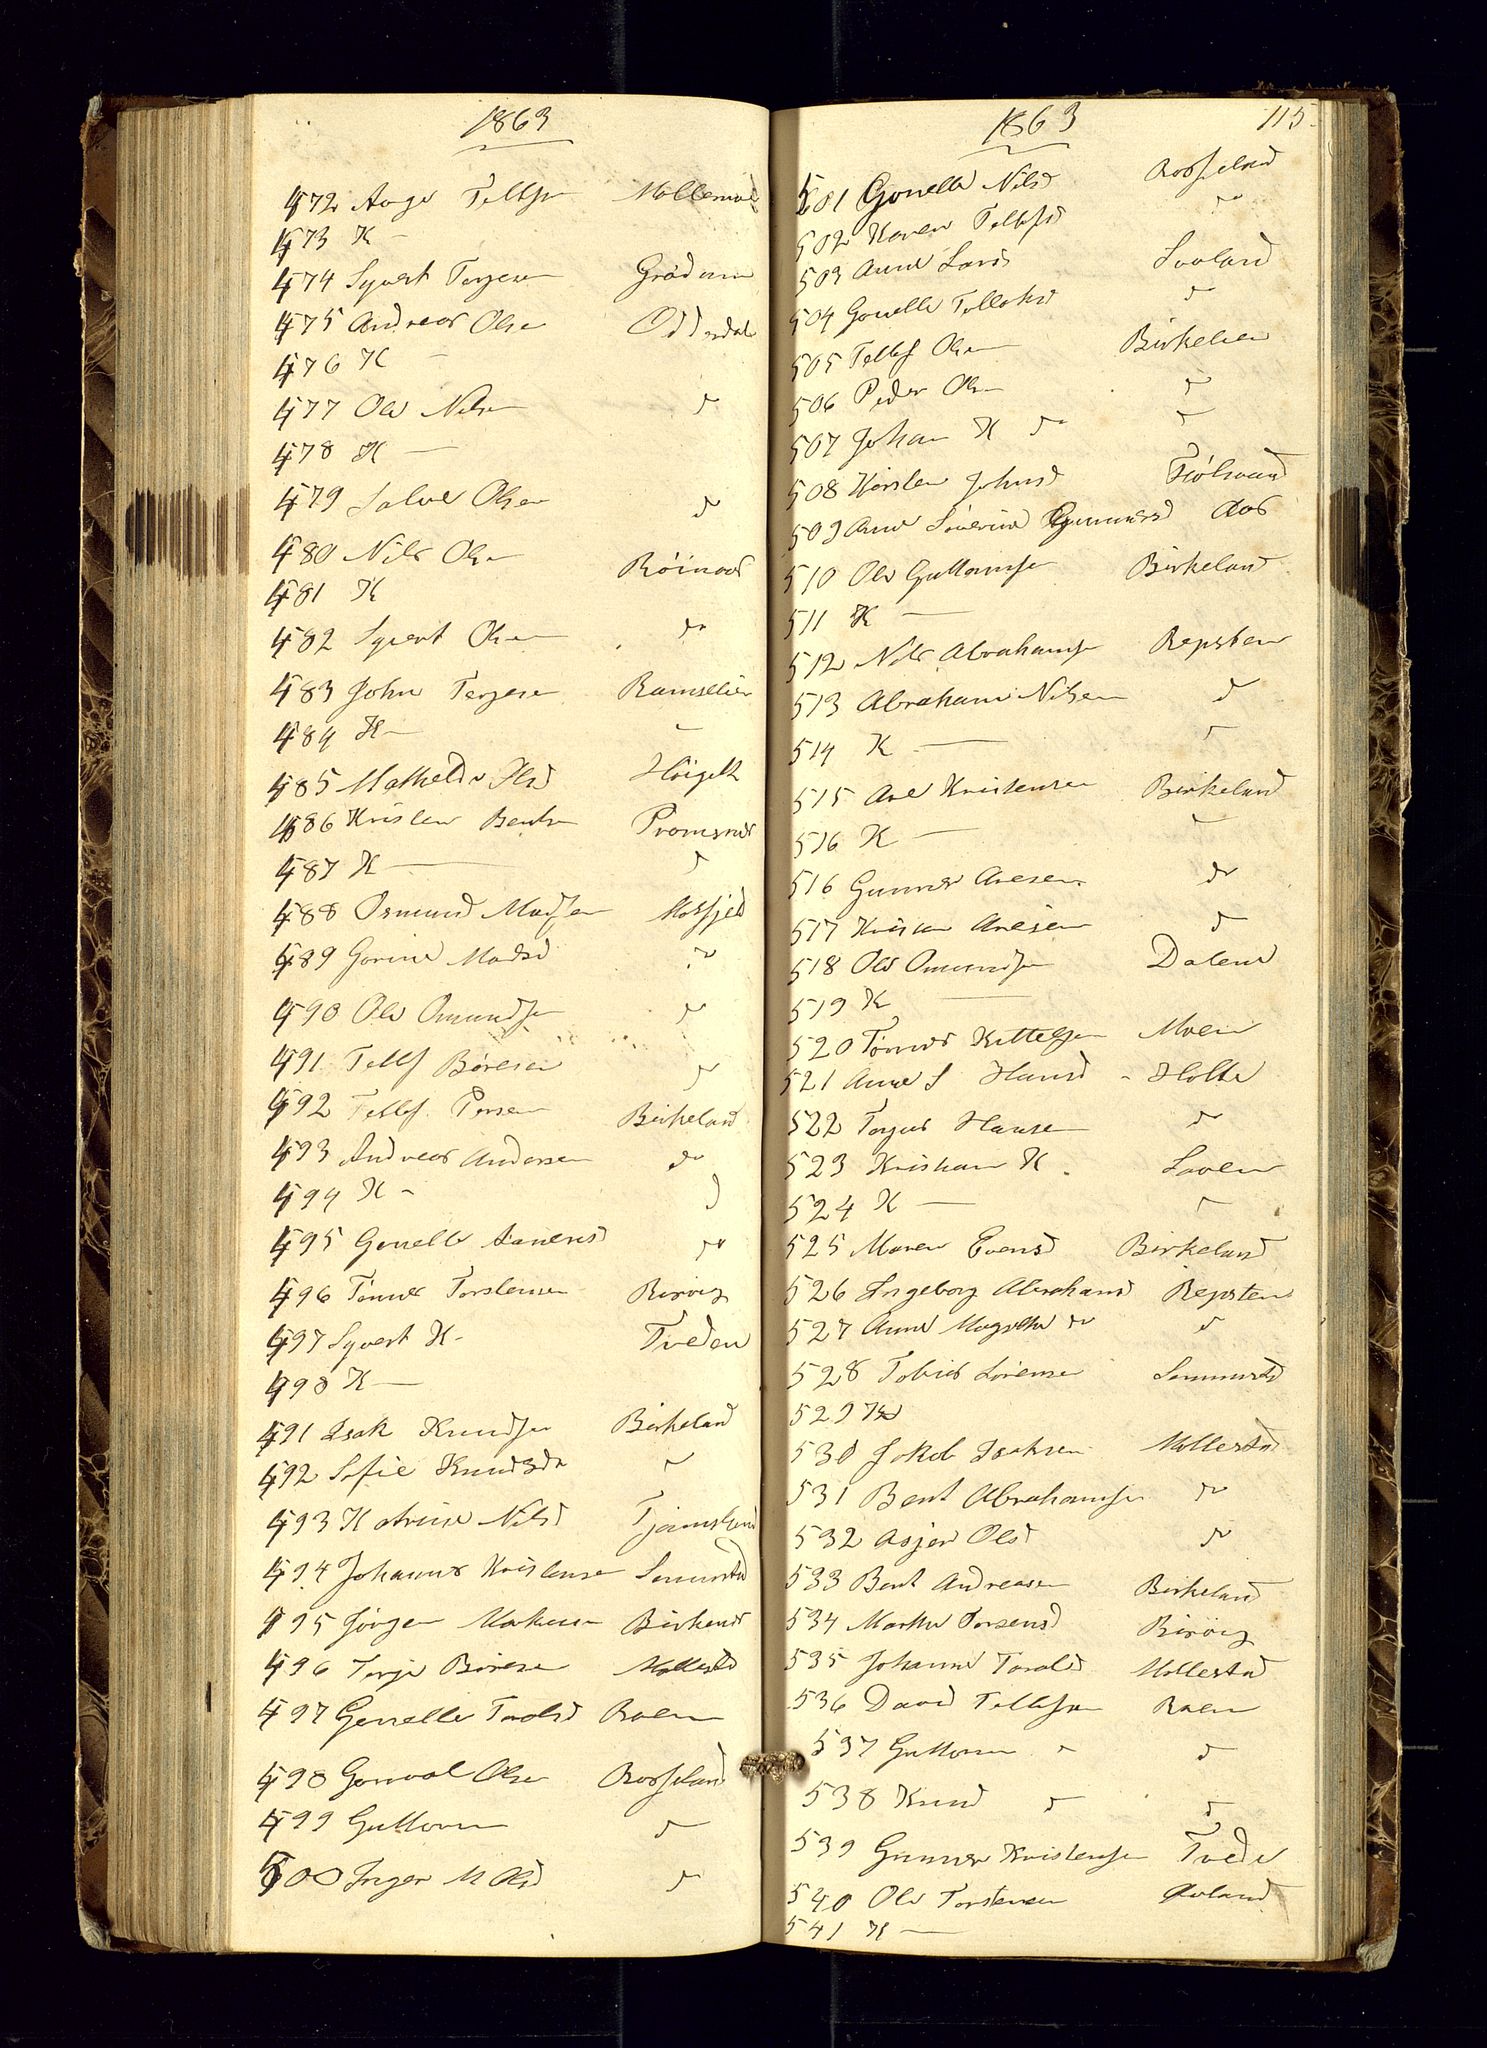 1863
472 Aage Tellefsn Mollemoes
473 K -
474 Syvert Terjesen Grødum
475 Andreas Olsen Oddersdal
476 K -
477 Ole Nilsen d
478 K -
479 Salve Olsen d
480 Nils Olsen Röinaas
481 K
482 Syvert Olsen do
483 John Terjesen Ramselien
484 K - -
485 Mathilde Olsd Höigilt
486 Kristen Bentsn Promsnes
487 K - d
488 Osmund Madsen Mosfjeld
489 Gorine Madsd do
490 Ole Omundsen do
491 Tellf Böresen do
492 Tellef Persen Birkeland
493 Andreas Andersen do
494 K -
495 Gonelle Aanensd do
496 Tönnes Torstensen Beröig
497 Syvert K - Tveden
498 K -
491 Isak Knudsen Birkeland
492 Sofie Knudsda d
493 Katrine Nilsd Tjomsland
494 Johannes Kristensen Senumstad
495 Jörgen Markusen Birkenes
496 Terje Böresen Mollestad
497 Gonelle Tarolsd Roen
498 Gonval Olsen Rosseland
499 Guttorm d
500 Inger M Olsd d
1863 115.
501 Gonelle Nilsd Rosseland
502 Karen Tellefsd d
503 Anne Larsd Svaland
504 Gonelle Tellefsd d
505 Tellef Olsen Birkelien
506 Peder Olsen d
507 Johan K do d
508 Kirsten Johnsd Fidsvand
509 Anne Severine Gunnarsd Aas
510 Ole Guttormsen Birkeland
511 K -
512 Nils Abrahamsen Repsten
513 Abraham Nilsen d
514 K - d
515 Are Kristensen Birkeland
516 K - d
516 Gunner Aresen do
517 Kristian Aresen d
518 Ole Omundsen Dalene
519 K -
520 Tönnes Kittelsen Moen
521 Anne S Hansd - Holte
522 Terjus Hansen d
523 Kristian K. Laven
524 K - d
525 Maren Evensd Birkeland
526 Ingeborg Abrahamsd Repsten
527 Anne Magrethe do d
528 Tobias Sörensen Senumstad
529 K
530 Jakob Isaksen Mollestad
531 Bent Abrahamsen do
532 Asjer Olsd d
533 Bent Andreasen Birkeland
534 Marthe Torsensd Beröig
535 Johanne Taralsd Mollestad
536 David Tellefsen Roen
537 Guttorm d d
538 Knud d d
539 Gunner Kristensen Tvede
540 Ole Torstensen Aaland
541 K -